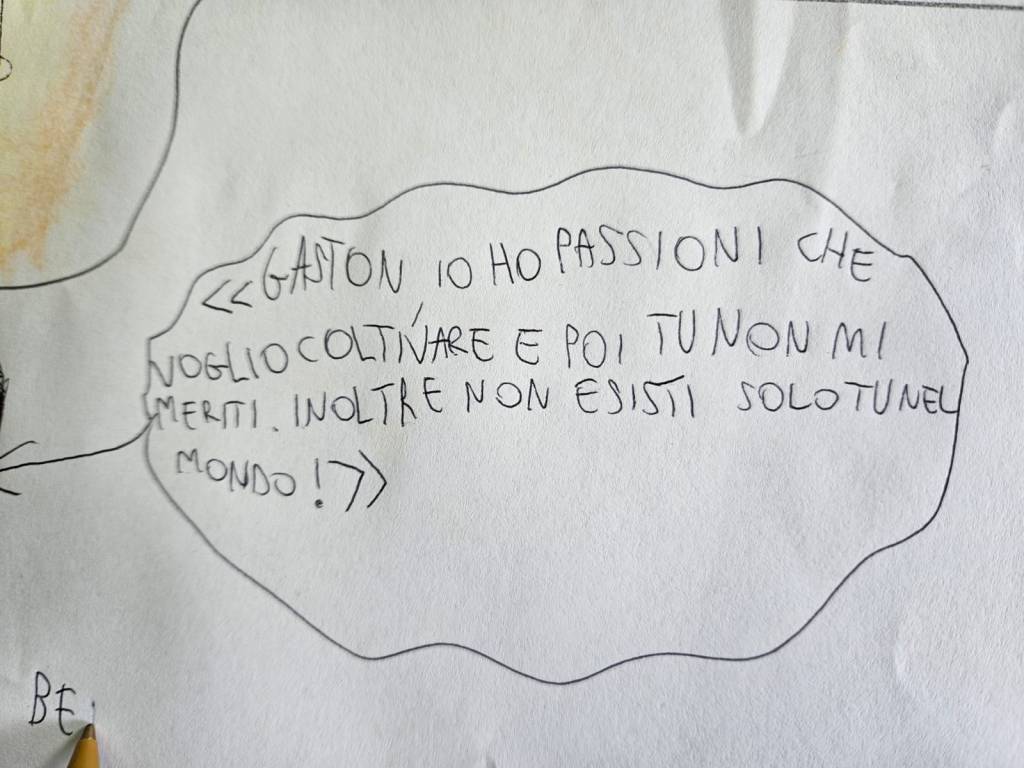 <<GASTON IO HO PASSIONI CHE
VOGLIO COLTIVARE E POI TU NON MI
MERITI. INOLTRE NON ESISTI SOLO TU NEL
MONDO!>>
BE